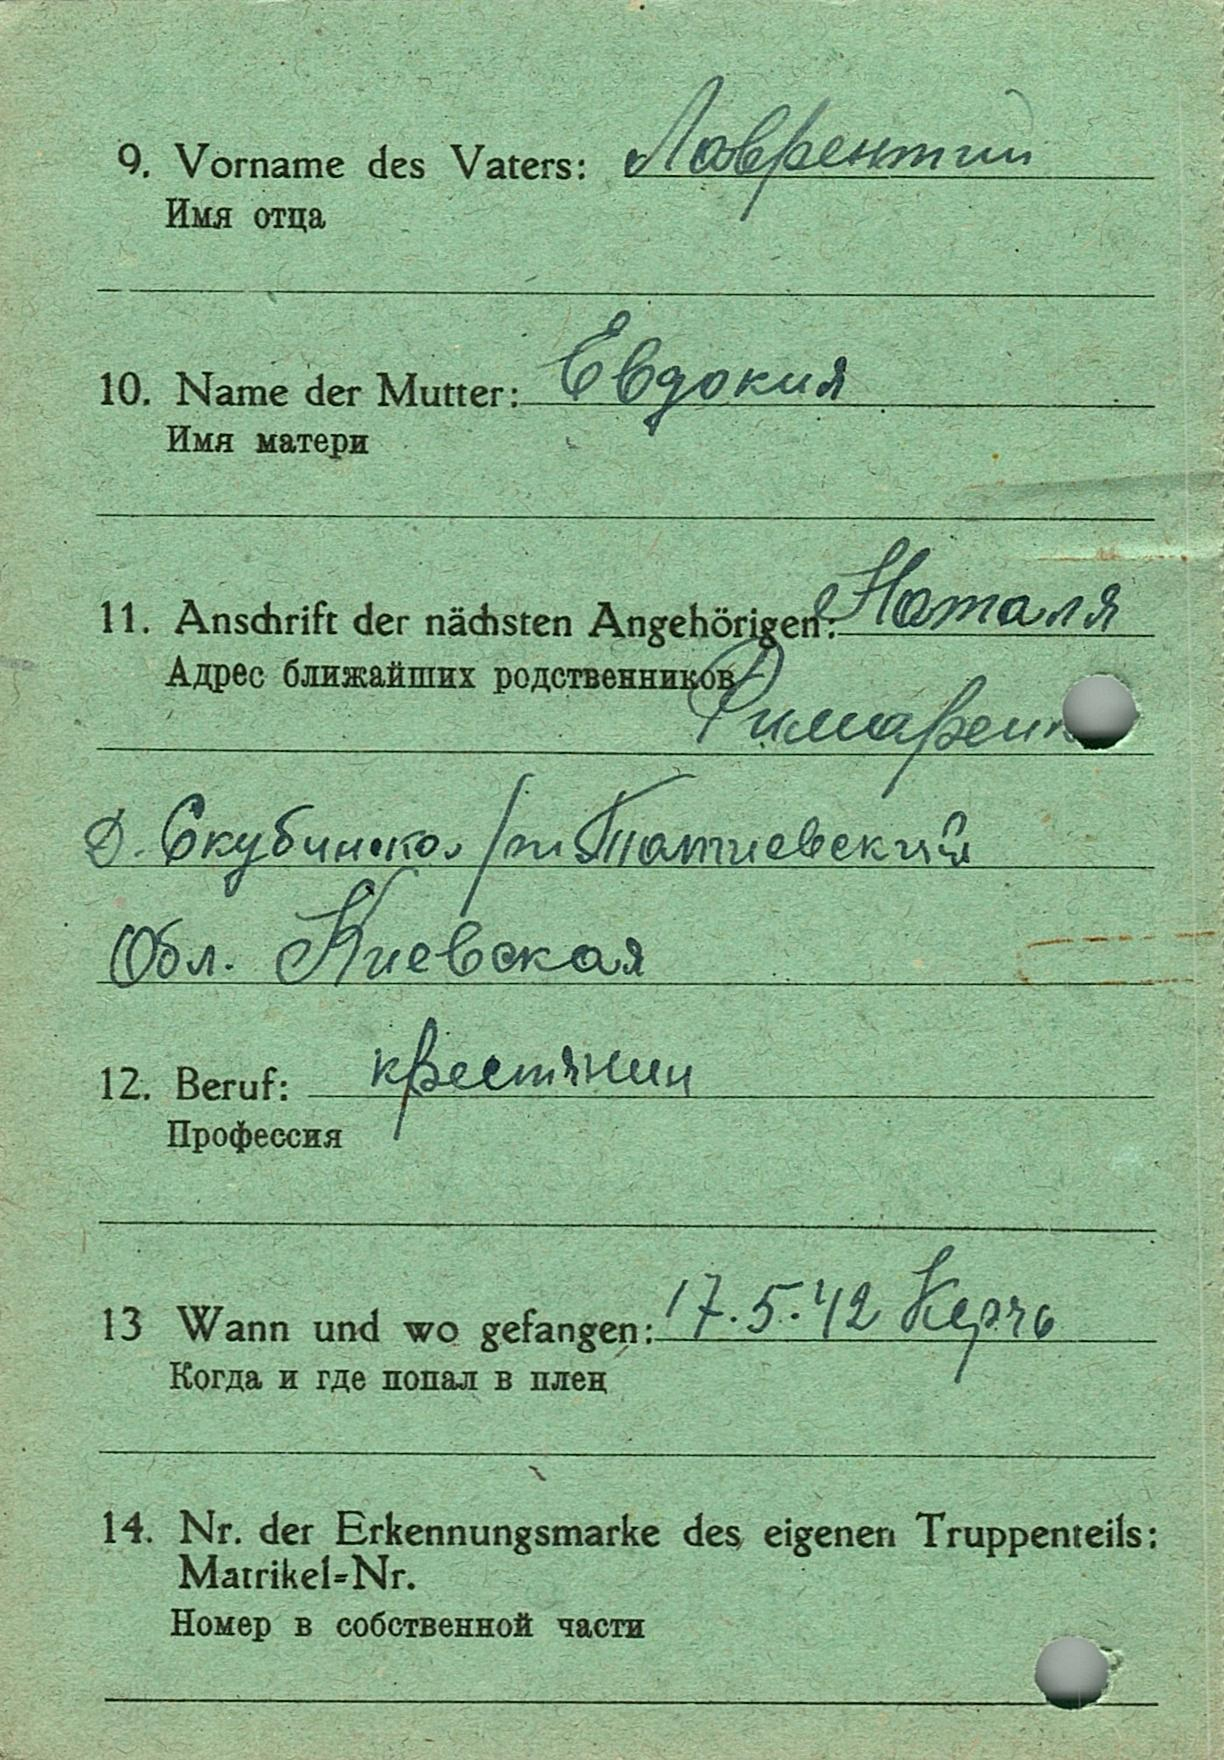 9. Vorname des Vaters: Лаврентий
Имя отца
10. Name der Mutter: Евдокия
Имя матери
11. Anschrift der nächsten Angehörigen: Наталя
Адрес ближайших родственников
Д. Скубинка
Обл. Киевская
12. Beruf: крестянин
Профессия
13 Wann und wo gefangen: 17.5.42 Керчь
Когда и где попал в плен
14. Nr. der Erkennungsmarke des eigenen Truppenteils:
Matrikel=Nr.
Номер в собственной части